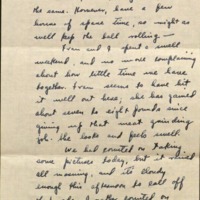 the same. However, have a few
hours of spare time, so might as
well keep the ball rolling—
Fran and I spent a swell
weekend, and no more complaining
about how little time we have
together. Fran seems to have hit
it well out here; she has gained
about seven to eight pounds since
giving up that meat grinding
job. She looks and feels swell.
We had counted on taking
some pictures today, but it rained
all morning, and its cloudy
enough this afternoon to call off
counted on